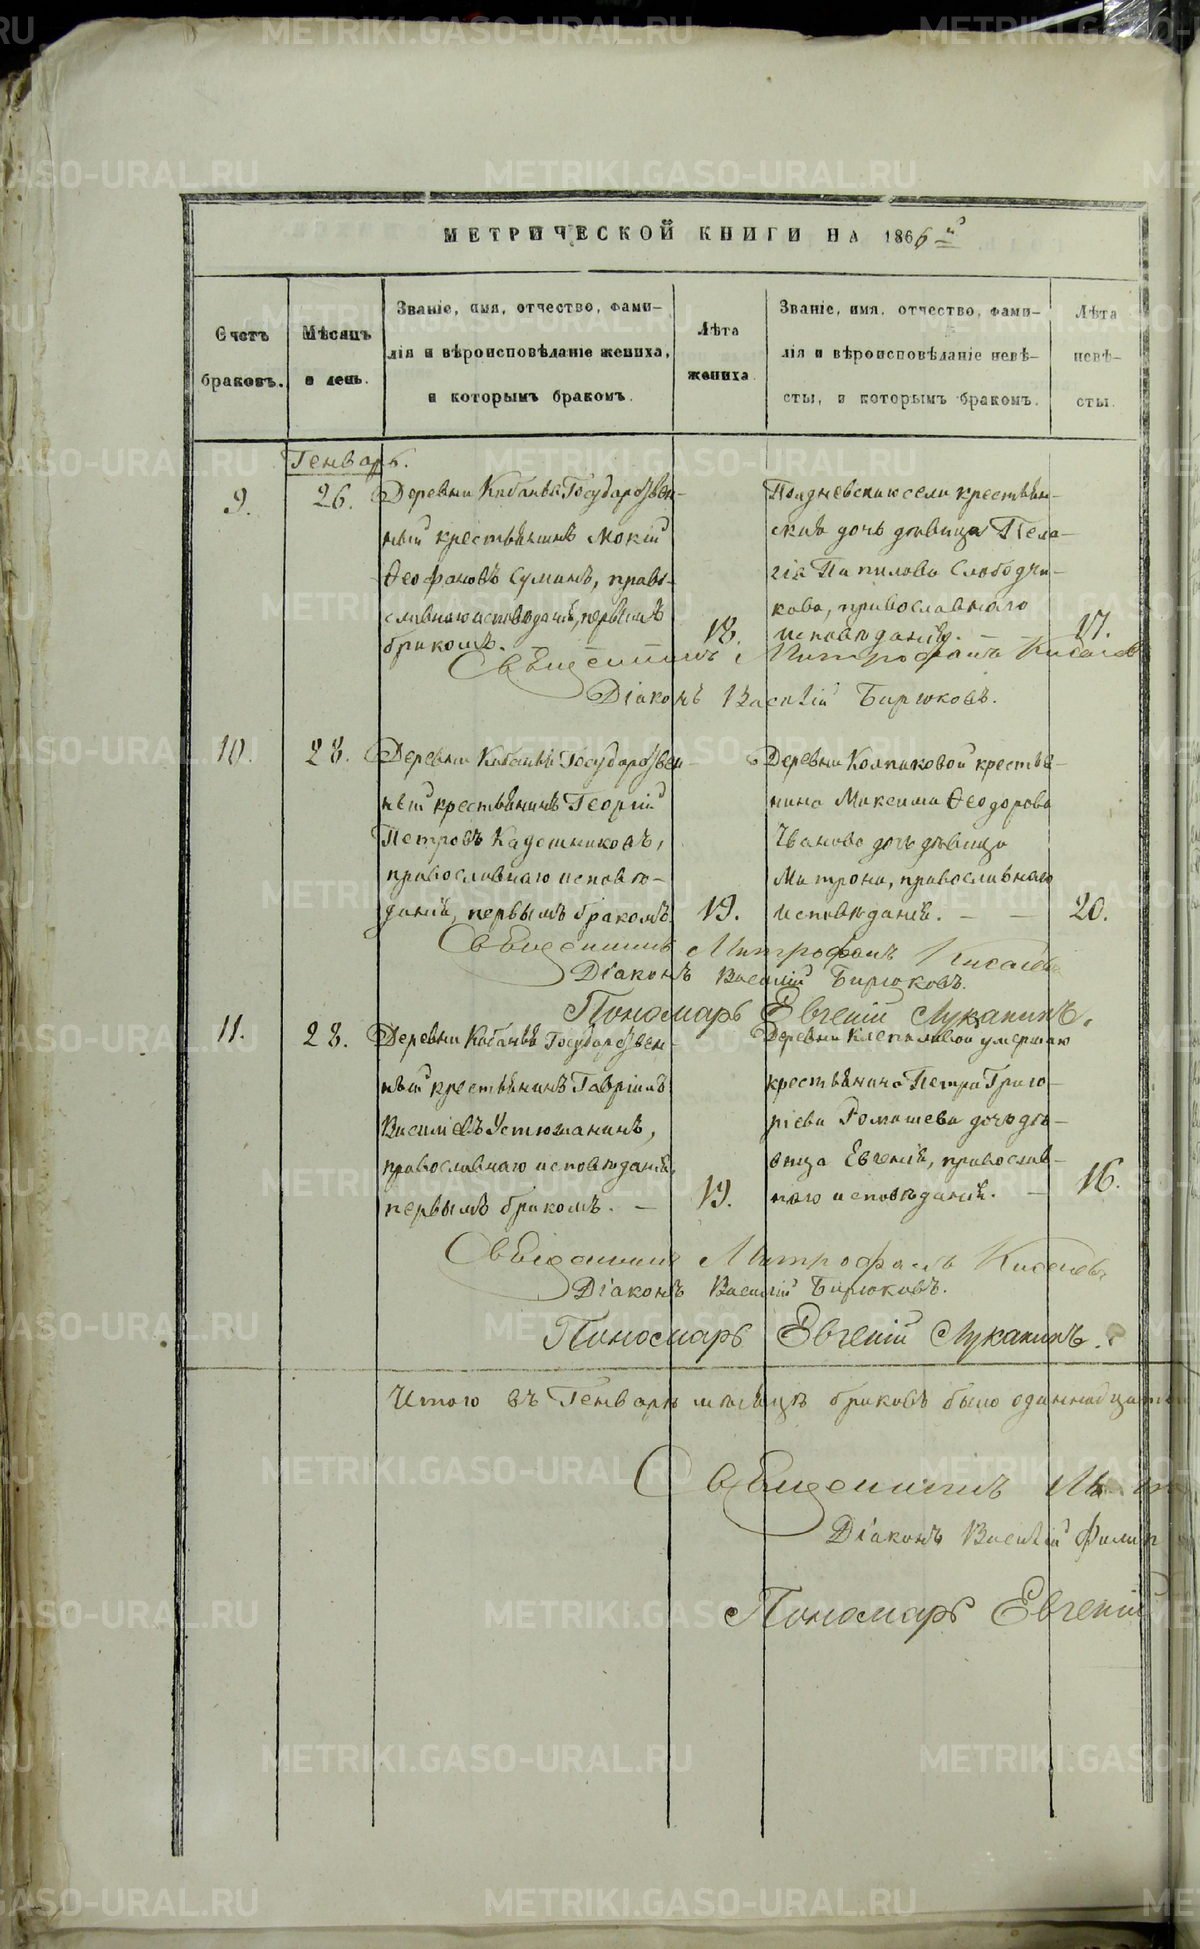 МЕТРИЧЕСКОЙ КНИГИ НА 1866й
Счетъ браковъ.
Мѣсяцъ и день.
Званіе, имя, отчество, фами-
лія и вѣроисповѣданіе жениха,
и которымъ бракомъ.
Лѣта жениха
Званіе, имя, отчество, фами-
лія и вѣроисповѣданіе невѣ-
сты, и которымъ бракомъ.
Лѣта невѣ-
сты.
Генварь.
9.
26.
Деревни Кабанья Государствен-
ный крестьянинъ Мокій
Ѳеофановъ Суминъ, право-
славнаго исповѣданія, первымъ
бракомъ.
18.
села крестьян-
дочь дѣвица Пела-
гія Папилова Слободчи-
кова, православнаго
исповѣданія.
17.
Священникъ Митрофанъ Киселевъ
Діаконъ Василій Бирюковъ.
10.
28.
Деревни Кабанья Государствен-
ный крестьянинъ Георгій
Петровъ Кадешниковъ,
православнаго исповѣ-
данія, первымъ бракомъ.
19.
Деревни Колпаковой крестья-
нина Максима Ѳеодорова
Иванова дочь дѣвица
Матрона, православнаго
исповѣданія.
20.
Священникъ Митрофанъ Киселевъ
Діаконъ Василій Бирюковъ.
Пономарь Евгеній Луканинъ.
11.
28.
Деревни Кабанья Государствен-
ный крестьянинъ Гавріилъ
Василіевъ Устюжанинъ,
православнаго исповѣданія,
первымъ бракомъ.
19.
Деревни Клепаловой умершаго
крестьянина Петра Григо-
ріева Ромашева дочь дѣ-
вица Евгенія, православ-
наго исповѣданія.
16.
Священникъ Митрофанъ Киселевъ
Діаконъ Василій Бирюковъ.
Пономарь Евгеній Луканинъ.
Итого въ Генварѣ мѣсяцѣ браковъ было одиннадцать
Священникъ Мит
Діаконъ Василій
Пономарь Евгеній
METRIKI.GASO-URAL.RU